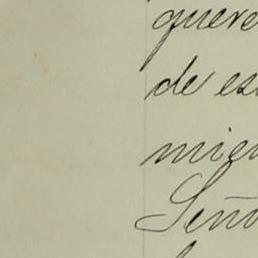 quere
de es
mien
Señ